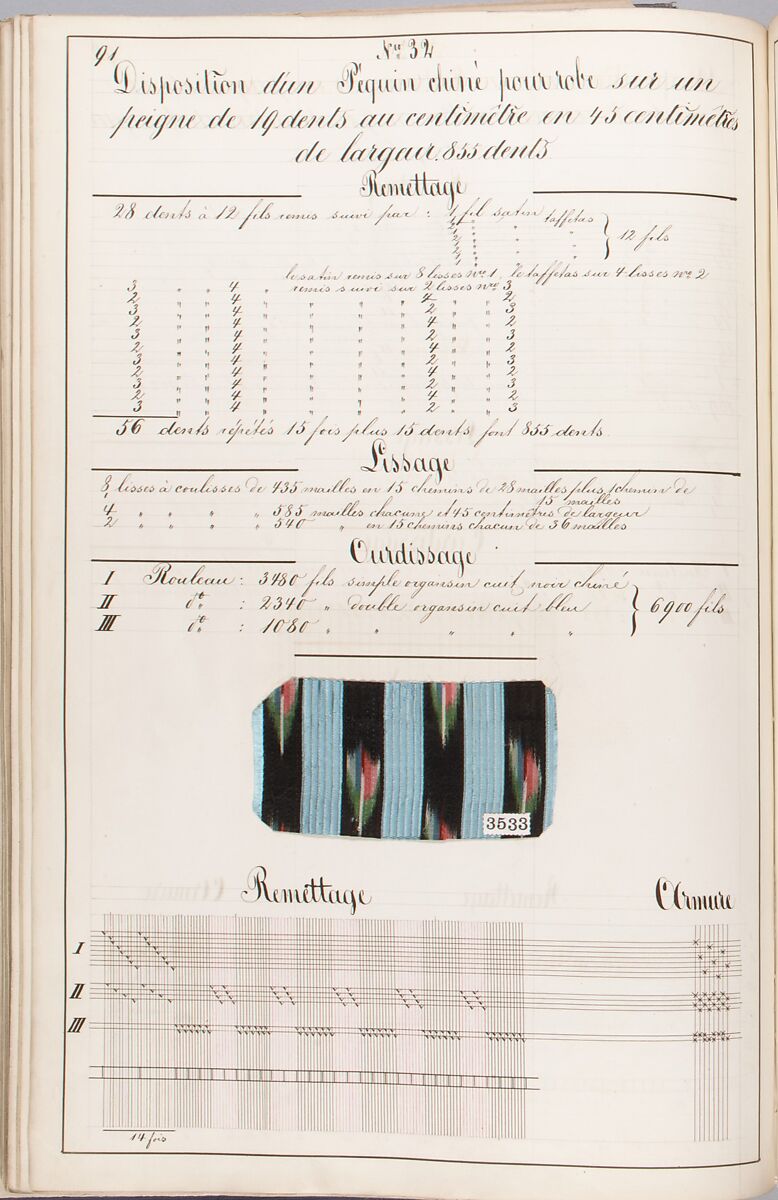 91
No. 32
Disposition d'un Péquin chiné pour robe sur un
peigne de 19 dents au centimètre en 45 centimètres
de largair. 855 dents
Remettage
28 dents à 12 fils remis suivi par : 1 fil satin taffetas
12 fils
le satin remis sur 8 lisses No. 1, le taffetas sur 4 lisses No. 2
3 " " 4 " remis suivi sur 2 lisses No. 3
2 " " 4 " " " " 4 " " 2
3 " " 4 " " " " 2 " " 3
2 " " 4 " " " " 4 " " 2
3 " " 4 " " " " 2 " " 3
2 " " 4 " " " " 4 " " 2
3 " " 4 " " " " 2 " " 3
2 " " 4 " " " " 4 " " 2
3 " " 4 " " " " 2 " " 3
2 " " 4 " " " " 4 " " 2
3 " " 4 " " " " 2 " " 3
56 dents répétés 15 fois plus 15 dents font 855 dents.
Lissage
8, lisses à coulisses de 435 mailles en 15 chemins de 28 mailles plus 1 chemin de
15 mailles
4 " " " " 585 mailles chacune et 45 centimètres de largeur
2 " " " " 540 " en 15 chemins chacun de 36 mailles
Ourdissage
I Rouleau : 3480 fils simple organsin cuit noir chiné
II do. : 2340 " double organsin cuit bleu
6900 fils
III do. : 1080 " " " " "
3533
Remettage
Armure
I
II
III
14 fois